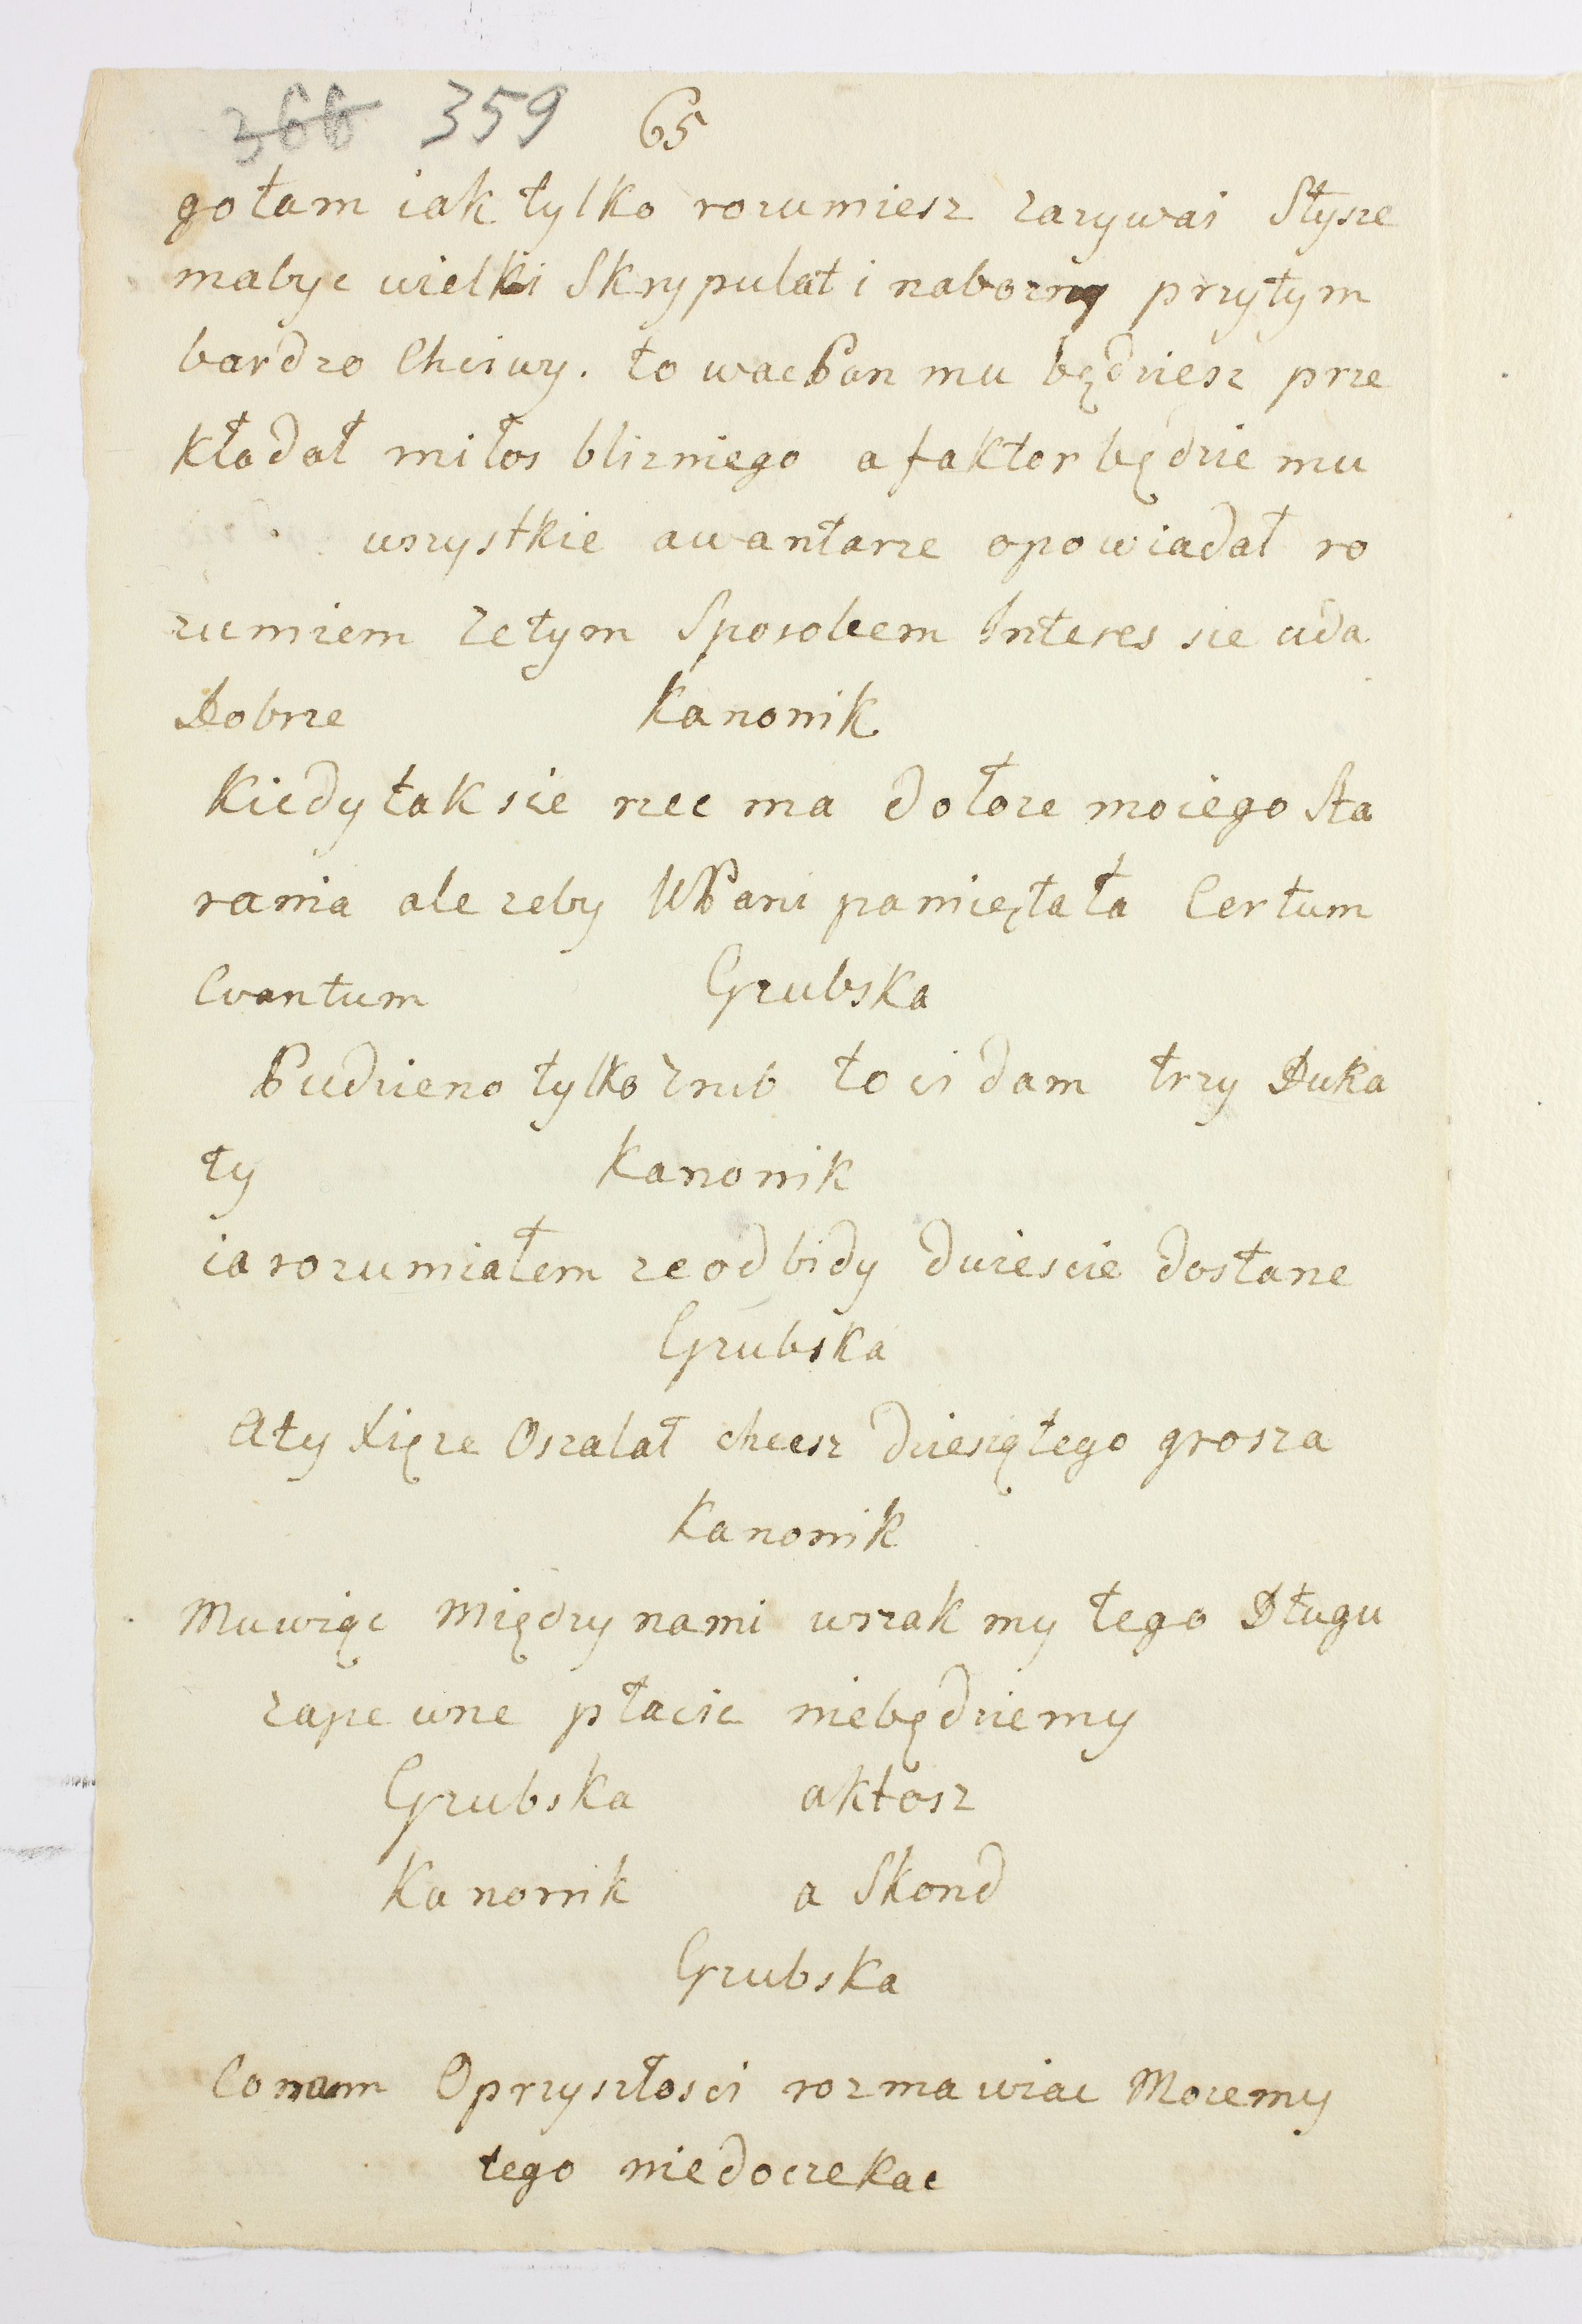 366 359 65
gotam iak tylko rozumiesz zazywai Słysze
mabyc wielki Skrypulat i nabozny przytym
bardzo Chciwy. to wacPan mu będziesz prze
kładał miłos blizniego a faktor będzie mu
wszystkie awantarze opowiadał ro
zumiem zetym Sposobem Interes sie uda
Dobrze Kanonik
Kiedy tak sie rzec ma dołoze moiego Sta
rania ale zeby WPani pamiętała Certum
Cvantum Grubska
Pudzieno tylko zrub to ci dam trzy Duka
ty Kanonik
ia rozumiałem ze od bidy dwiescie dostane
Grubska
Aty Xięze Oszalał chcesz dziesiętego grosza
Kanonik
Muwięc Między nami wszak my tego Długu
zapewne płacic niebędziemy
Grubska aktosz
Kanonik a Skond
Grubska
Comam Oprzyszłosci rozmawiac Mozemy
tego niedoczekac